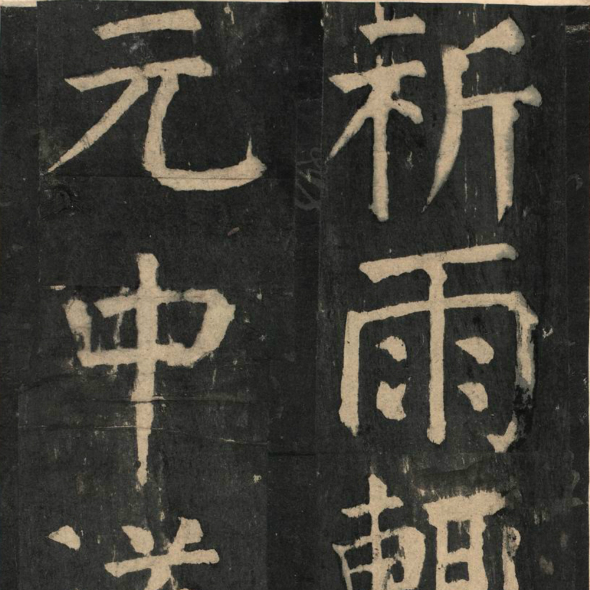 祈雨輒
元中